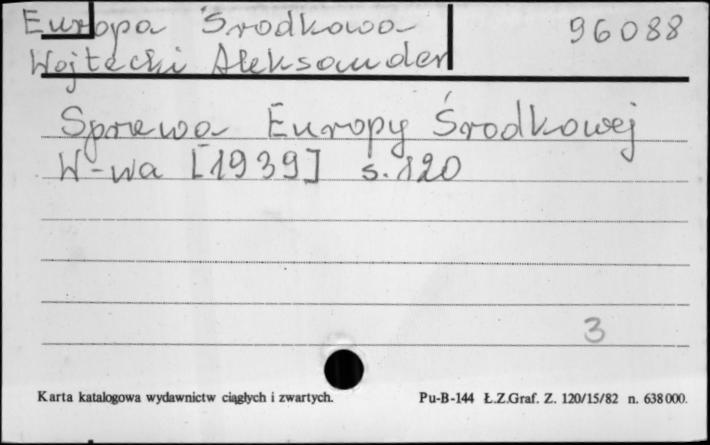 Europa Środkowa 96088
Wojtecki Aleksander
Sprawa Europy Środkowej
W-wa [1939] s. 120
3
Karta katalogowa wydawnictw ciągłych i zwartych. Pu-B-144 Ł.Z.Graf. Z. 120/15/82 n. 638 000.